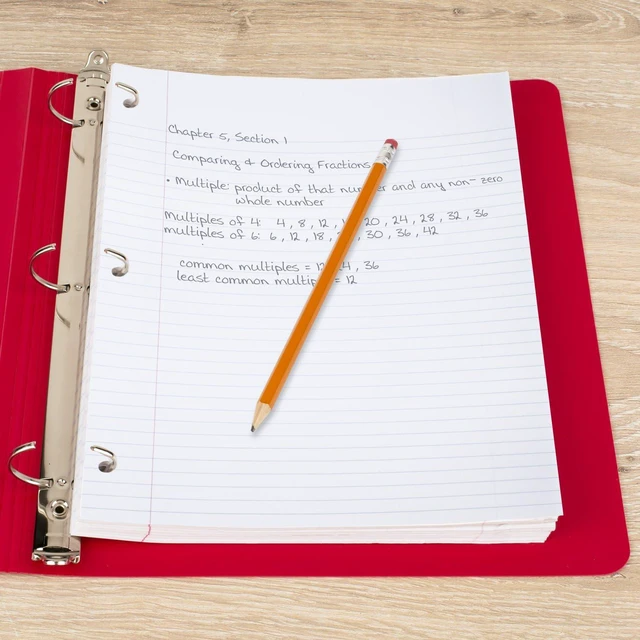 Chapter 5, Section 1
Comparing & Ordering Fractions
• Multiple: product of that number and any non-zero
whole number
Multiples of 4: 4, 8, 12, 20, 24, 28, 32, 36
multiples of 6: 6, 12, 18, 30, 36, 42
common multiples = 12, 24, 36
least common multiple = 12